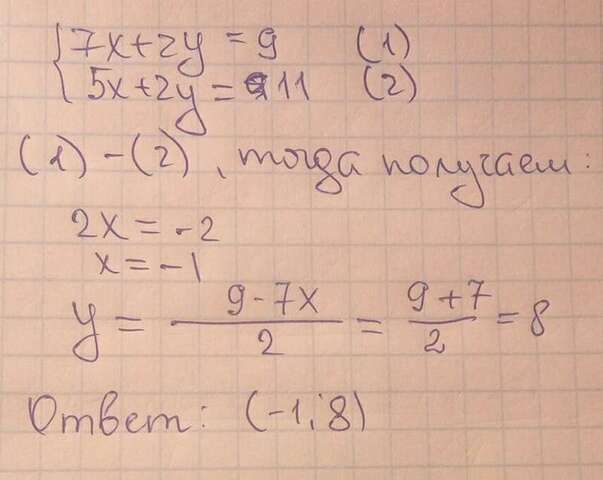 7x+2y = 9 (1)
5x+2y = 11 (2)
(1)-(2), тогда получаем:
2x = -2
x = -1
y = (9-7x)/2 = (9+7)/2 = 8
Ответ: (-1; 8)